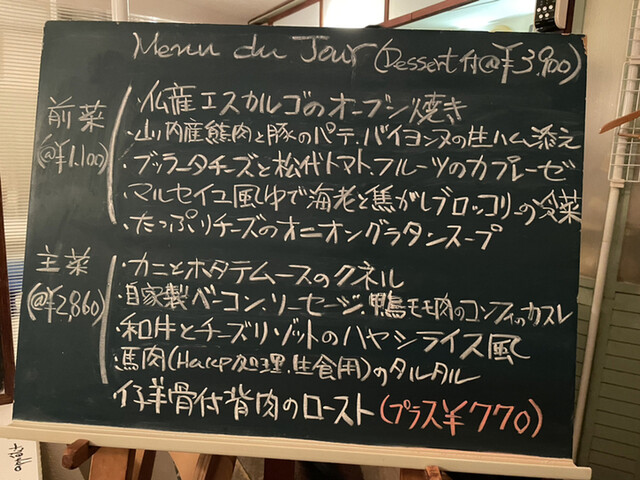 Menu du Jour (Dessert付@¥3,900)
前菜
(@¥1,100)
・仏産エスカルゴのオーブン焼き
・山ノ内産熊肉と豚のパテ、バイヨンヌの生ハム添え
・ブッラータチーズと松代トマト、フルーツのカプレーゼ
・マルセイユ風ゆで海老と焦がしブロッコリーの冷菜
・たっぷりチーズのオニオングラタンスープ
主菜
(@¥2,860)
・カニとホタテムースのクネル
・自家製ベーコン、ソーセージ、鴨モモ肉のコンフィのカスレ
・和牛とチーズリゾットのハヤシライス風
・馬肉(Haccp処理、生食用)のタルタル
・仔羊骨付背肉のロースト(プラス¥770)